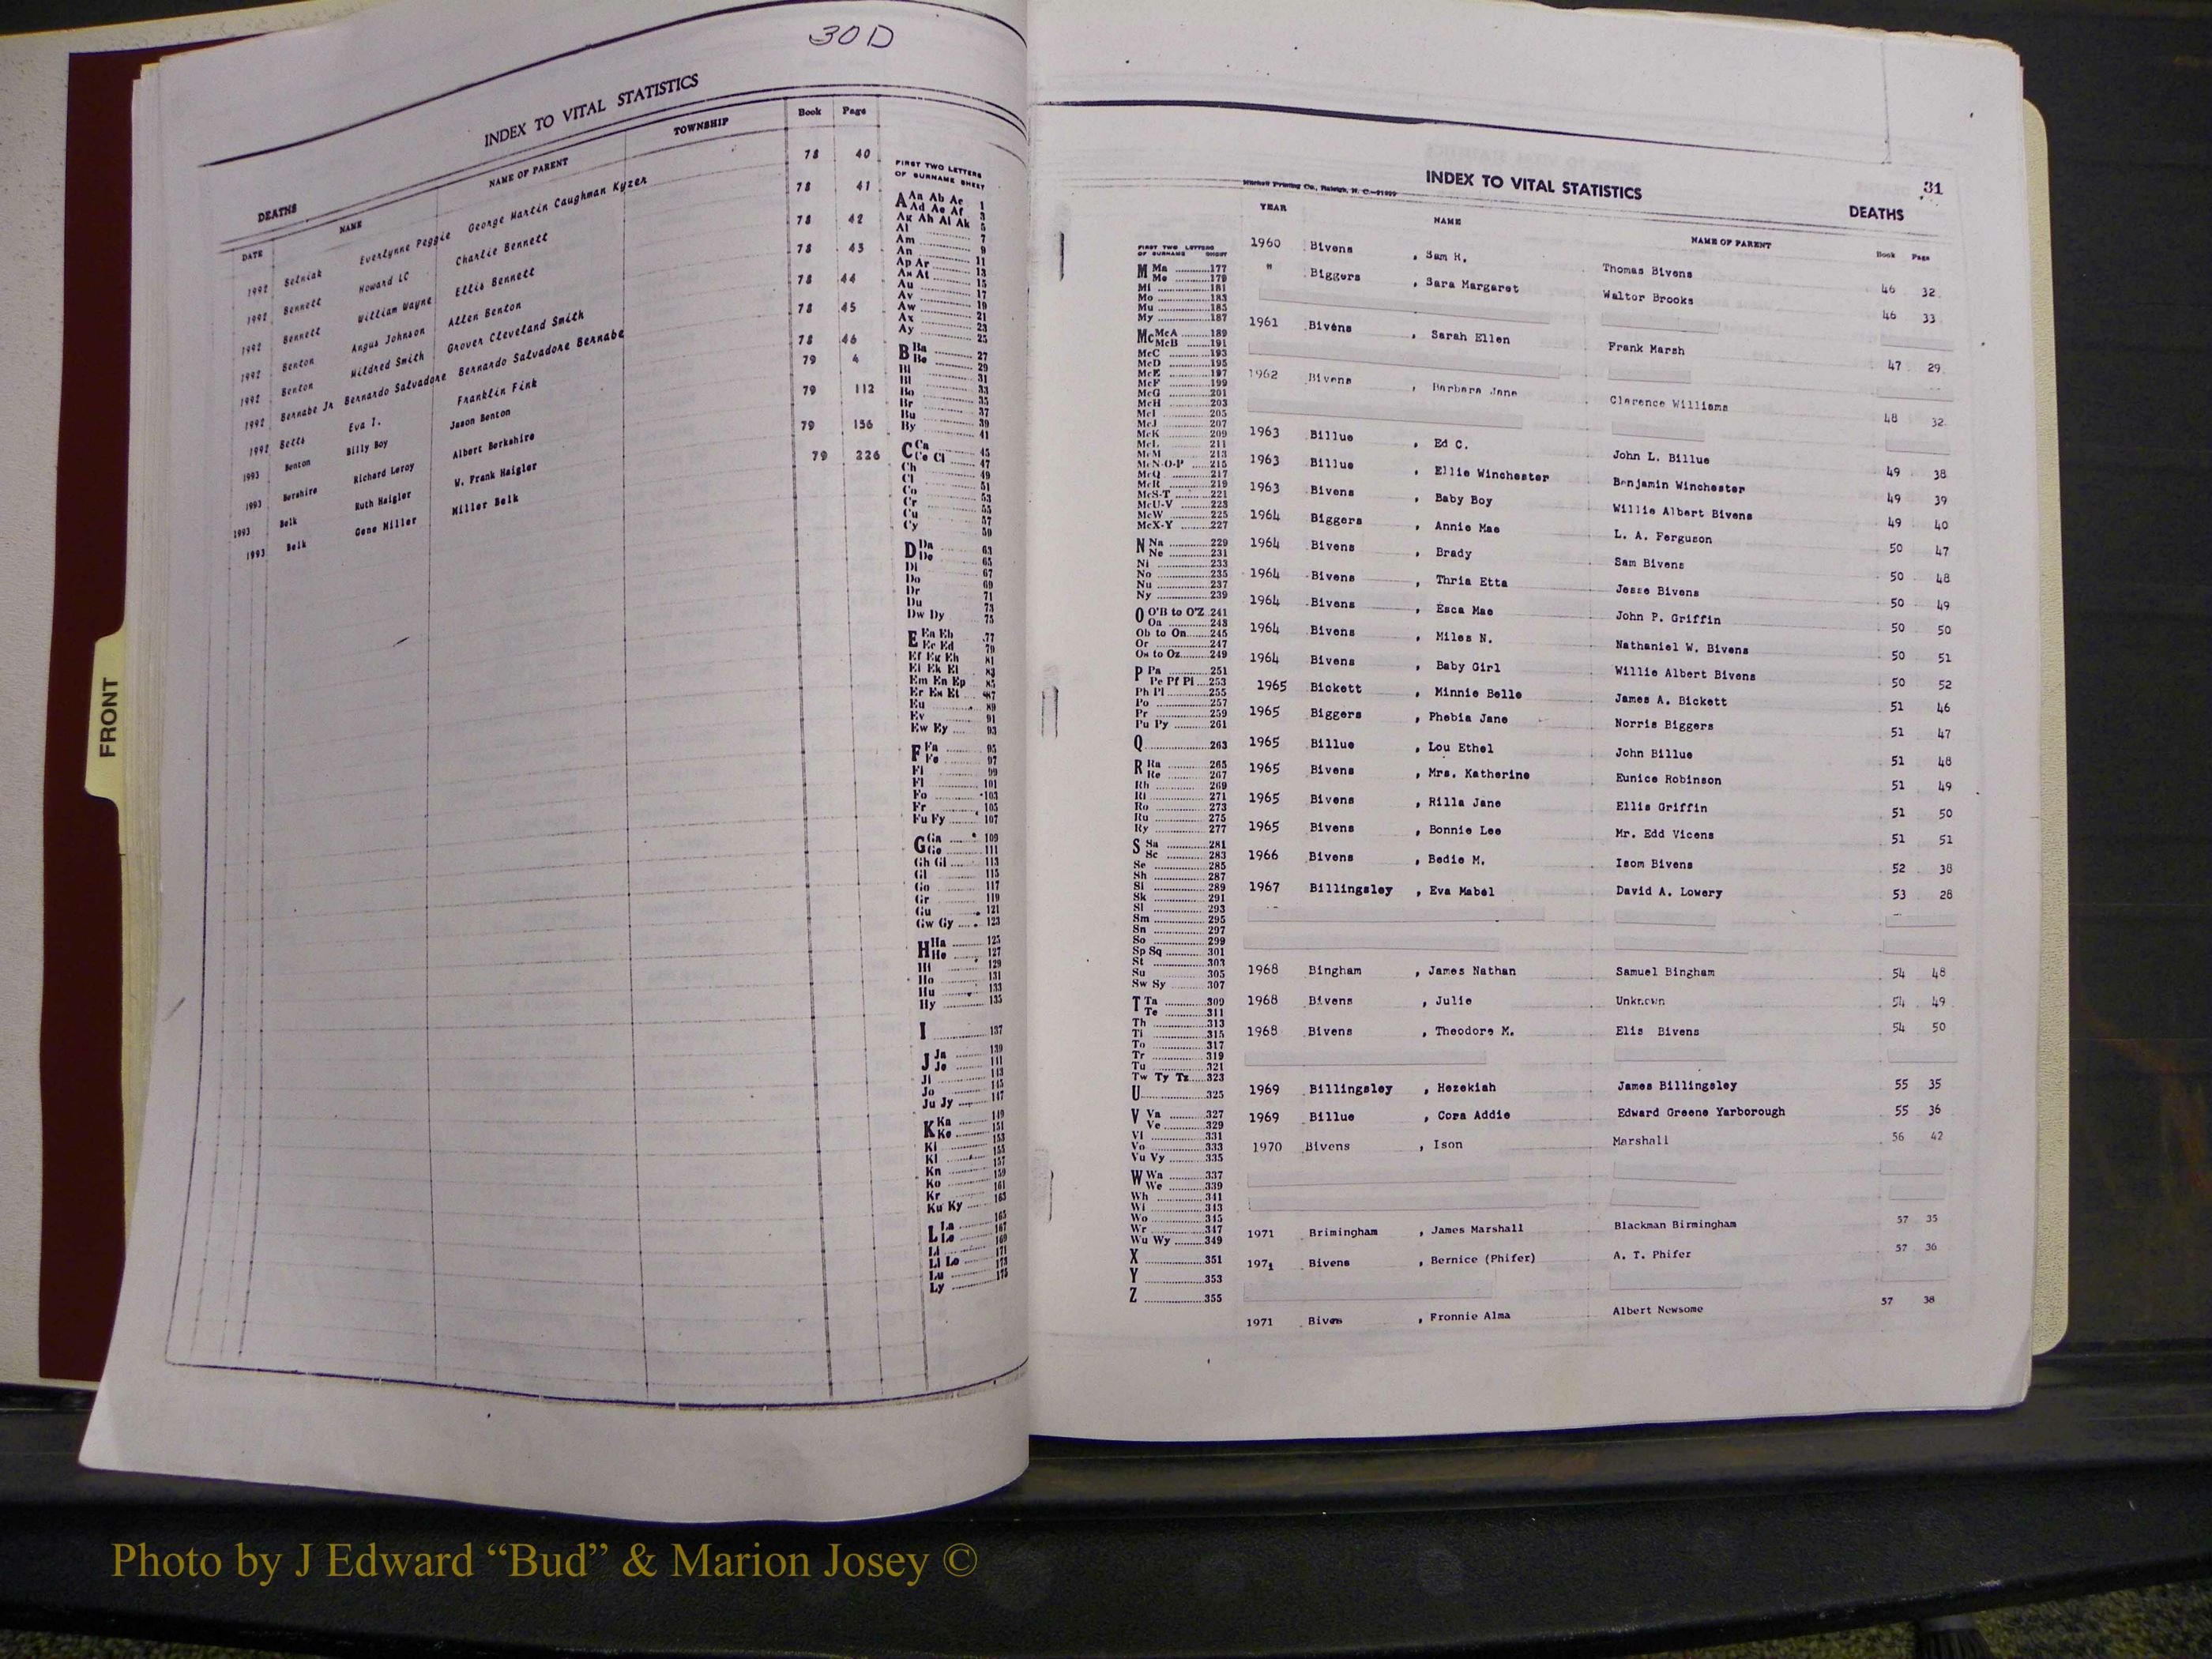 30D
INDEX TO VITAL STATISTICS
DEATHS
DATE NAME NAME OF PARENT TOWNSHIP Book Page
1992 Everlynne Peggie George Martin Caughman Kyzer 78 40
1992 Bennett Howard LC Charlie Bennett 78 41
1992 Bennett William Wayne Ellis Bennett 78 42
1992 Benton Angus Johnson Allen Benton 78 43
1992 Benton Mildred Smith Grover Cleveland Smith 78 44
1992 Bernabe Jr Bernardo Salvadore Bernardo Salvadore Bernabe 78 45
1992 Betts Eva I. Franklin Fink 78 46
1993 Benton Billy Boy Jason Benton 79 4
1993 Bershire Richard Leroy Albert Berkshire 79 112
1993 Belk Ruth Haigler W. Frank Haigler 79 156
1993 Belk Gene Miller Miller Belk 79 226
FIRST TWO LETTERS
OF SURNAME SHEET
A Aa Ab Ac 1
Ad Ae Af 3
Ag Ah Ai Ak 5
Al 7
Am 9
An 11
Ap Ar 13
As At 15
Au 17
Av 19
Aw 21
Ax 23
Ay 25
B Ba 27
Be 29
Bi 31
Bl 33
Bo 35
Br 37
Bu 39
By 41
C Ca 45
Ce Ci 47
Ch 49
Cl 51
Co 53
Cr 55
Cu 57
Cy 59
D Da 63
De 65
Di 67
Do 69
Dr 71
Du 73
Dw Dy 75
E Ea Eb 77
Ec Ed 79
Ef Eg Eh 81
Ei Ek El 83
Em En Ep 85
Er Es Et 87
Eu 89
Ev 91
Ew Ey 93
F Fa 95
Fe 97
Fi 99
Fl 101
Fo 103
Fr 105
Fu Fy 107
G Ga 109
Ge 111
Gh Gi 113
Gl 115
Go 117
Gr 119
Gu 121
Gw Gy 123
H Ha 125
He 127
Hi 129
Ho 131
Hu 133
Hy 135
I 137
J Ja 139
Je 141
Ji 143
Jo 145
Ju Jy 147
K Ka 149
Ke 151
Ki 153
Kl 155
Kn 157
Ko 159
Kr 161
Ku Ky 163
L La 165
Le 167
Li 169
Ll Lo 171
Lu 173
Ly 175
FRONT
31
Mitchell Printing Co., Raleigh, N. C.
INDEX TO VITAL STATISTICS
DEATHS
YEAR NAME NAME OF PARENT Book Page
1960 Bivens , Sam H. Thomas Bivens 46 32
" Biggers , Sara Margaret Walter Brooks 46 33
1961 Bivens , Sarah Ellen Frank Marsh 47 29
1962 Bivens , Barbara Jane Clarence Williams 48 32
1963 Billue , Ed C. John L. Billue 49 38
1963 Billue , Ellie Winchester Benjamin Winchester 49 39
1963 Bivens , Baby Boy Willie Albert Bivens 49 40
1964 Biggers , Annie Mae L. A. Ferguson 50 47
1964 Bivens , Brady Sam Bivens 50 48
1964 Bivens , Thria Etta Jesse Bivens 50 49
1964 Bivens , Esca Mae John P. Griffin 50 50
1964 Bivens , Miles N. Nathaniel W. Bivens 50 51
1964 Bivens , Baby Girl Willie Albert Bivens 50 52
1965 Bickett , Minnie Belle James A. Bickett 51 46
1965 Biggers , Phebia Jane Norris Biggers 51 47
1965 Billue , Lou Ethel John Billue 51 48
1965 Bivens , Mrs. Katherine Eunice Robinson 51 49
1965 Bivens , Rilla Jane Ellis Griffin 51 50
1965 Bivens , Bonnie Lee Mr. Edd Vicens 51 51
1966 Bivens , Bedie M. Isom Bivens 52 38
1967 Billingsley , Eva Mabel David A. Lowery 53 28
1968 Bingham , James Nathan Samuel Bingham 54 48
1968 Bivens , Julie Unknown 54 49
1968 Bivens , Theodore M. Elis Bivens 54 50
1969 Billingsley , Hezekiah James Billingsley 55 35
1969 Billue , Cora Addie Edward Greene Yarborough 55 36
1970 Bivens , Ison Marshall 56 42
1971 Brimingham , James Marshall Blackman Birmingham 57 35
1971 Bivens , Bernice (Phifer) A. T. Phifer 57 36
1971 Bivens , Fronnie Alma Albert Newsome 57 38
FIRST TWO LETTERS
OF SURNAME SHEET
M Ma 177
Me 179
Mi 181
Mo 183
Mu 185
My 187
Mc McA 189
McB 191
McC 193
McD 195
McE 197
McF 199
McG 201
McH 203
McI 205
McJ 207
McK 209
McL 211
McM 213
McN-O-P 215
McQ 217
McR 219
McS-T 221
McU-V 223
McW 225
McX-Y 227
N Na 229
Ne 231
Ni 233
No 235
Nu 237
Ny 239
O O'B to O'Z 241
Oa 243
Ob to On 245
Or 247
Os to Oz 249
P Pa 251
Pe Pf Pi 253
Ph Pl 255
Po 257
Pr 259
Pu Py 261
Q 263
R Ra 265
Re 267
Rh 269
Ri 271
Ro 273
Ru 275
Ry 277
S Sa 281
Sc 283
Se 285
Sh 287
Si 289
Sk 291
Sl 293
Sm 295
Sn 297
So 299
Sp Sq 301
St 303
Su 305
Sw Sy 307
T Ta 309
Te 311
Th 313
Ti 315
To 317
Tr 319
Tu 321
Tw Ty Tz 323
U 325
V Va 327
Ve 329
Vi 331
Vo 333
Vu Vy 335
W Wa 337
We 339
Wh 341
Wi 343
Wo 345
Wr 347
Wu Wy 349
X 351
Y 353
Z 355
Photo by J Edward “Bud” & Marion Josey ©